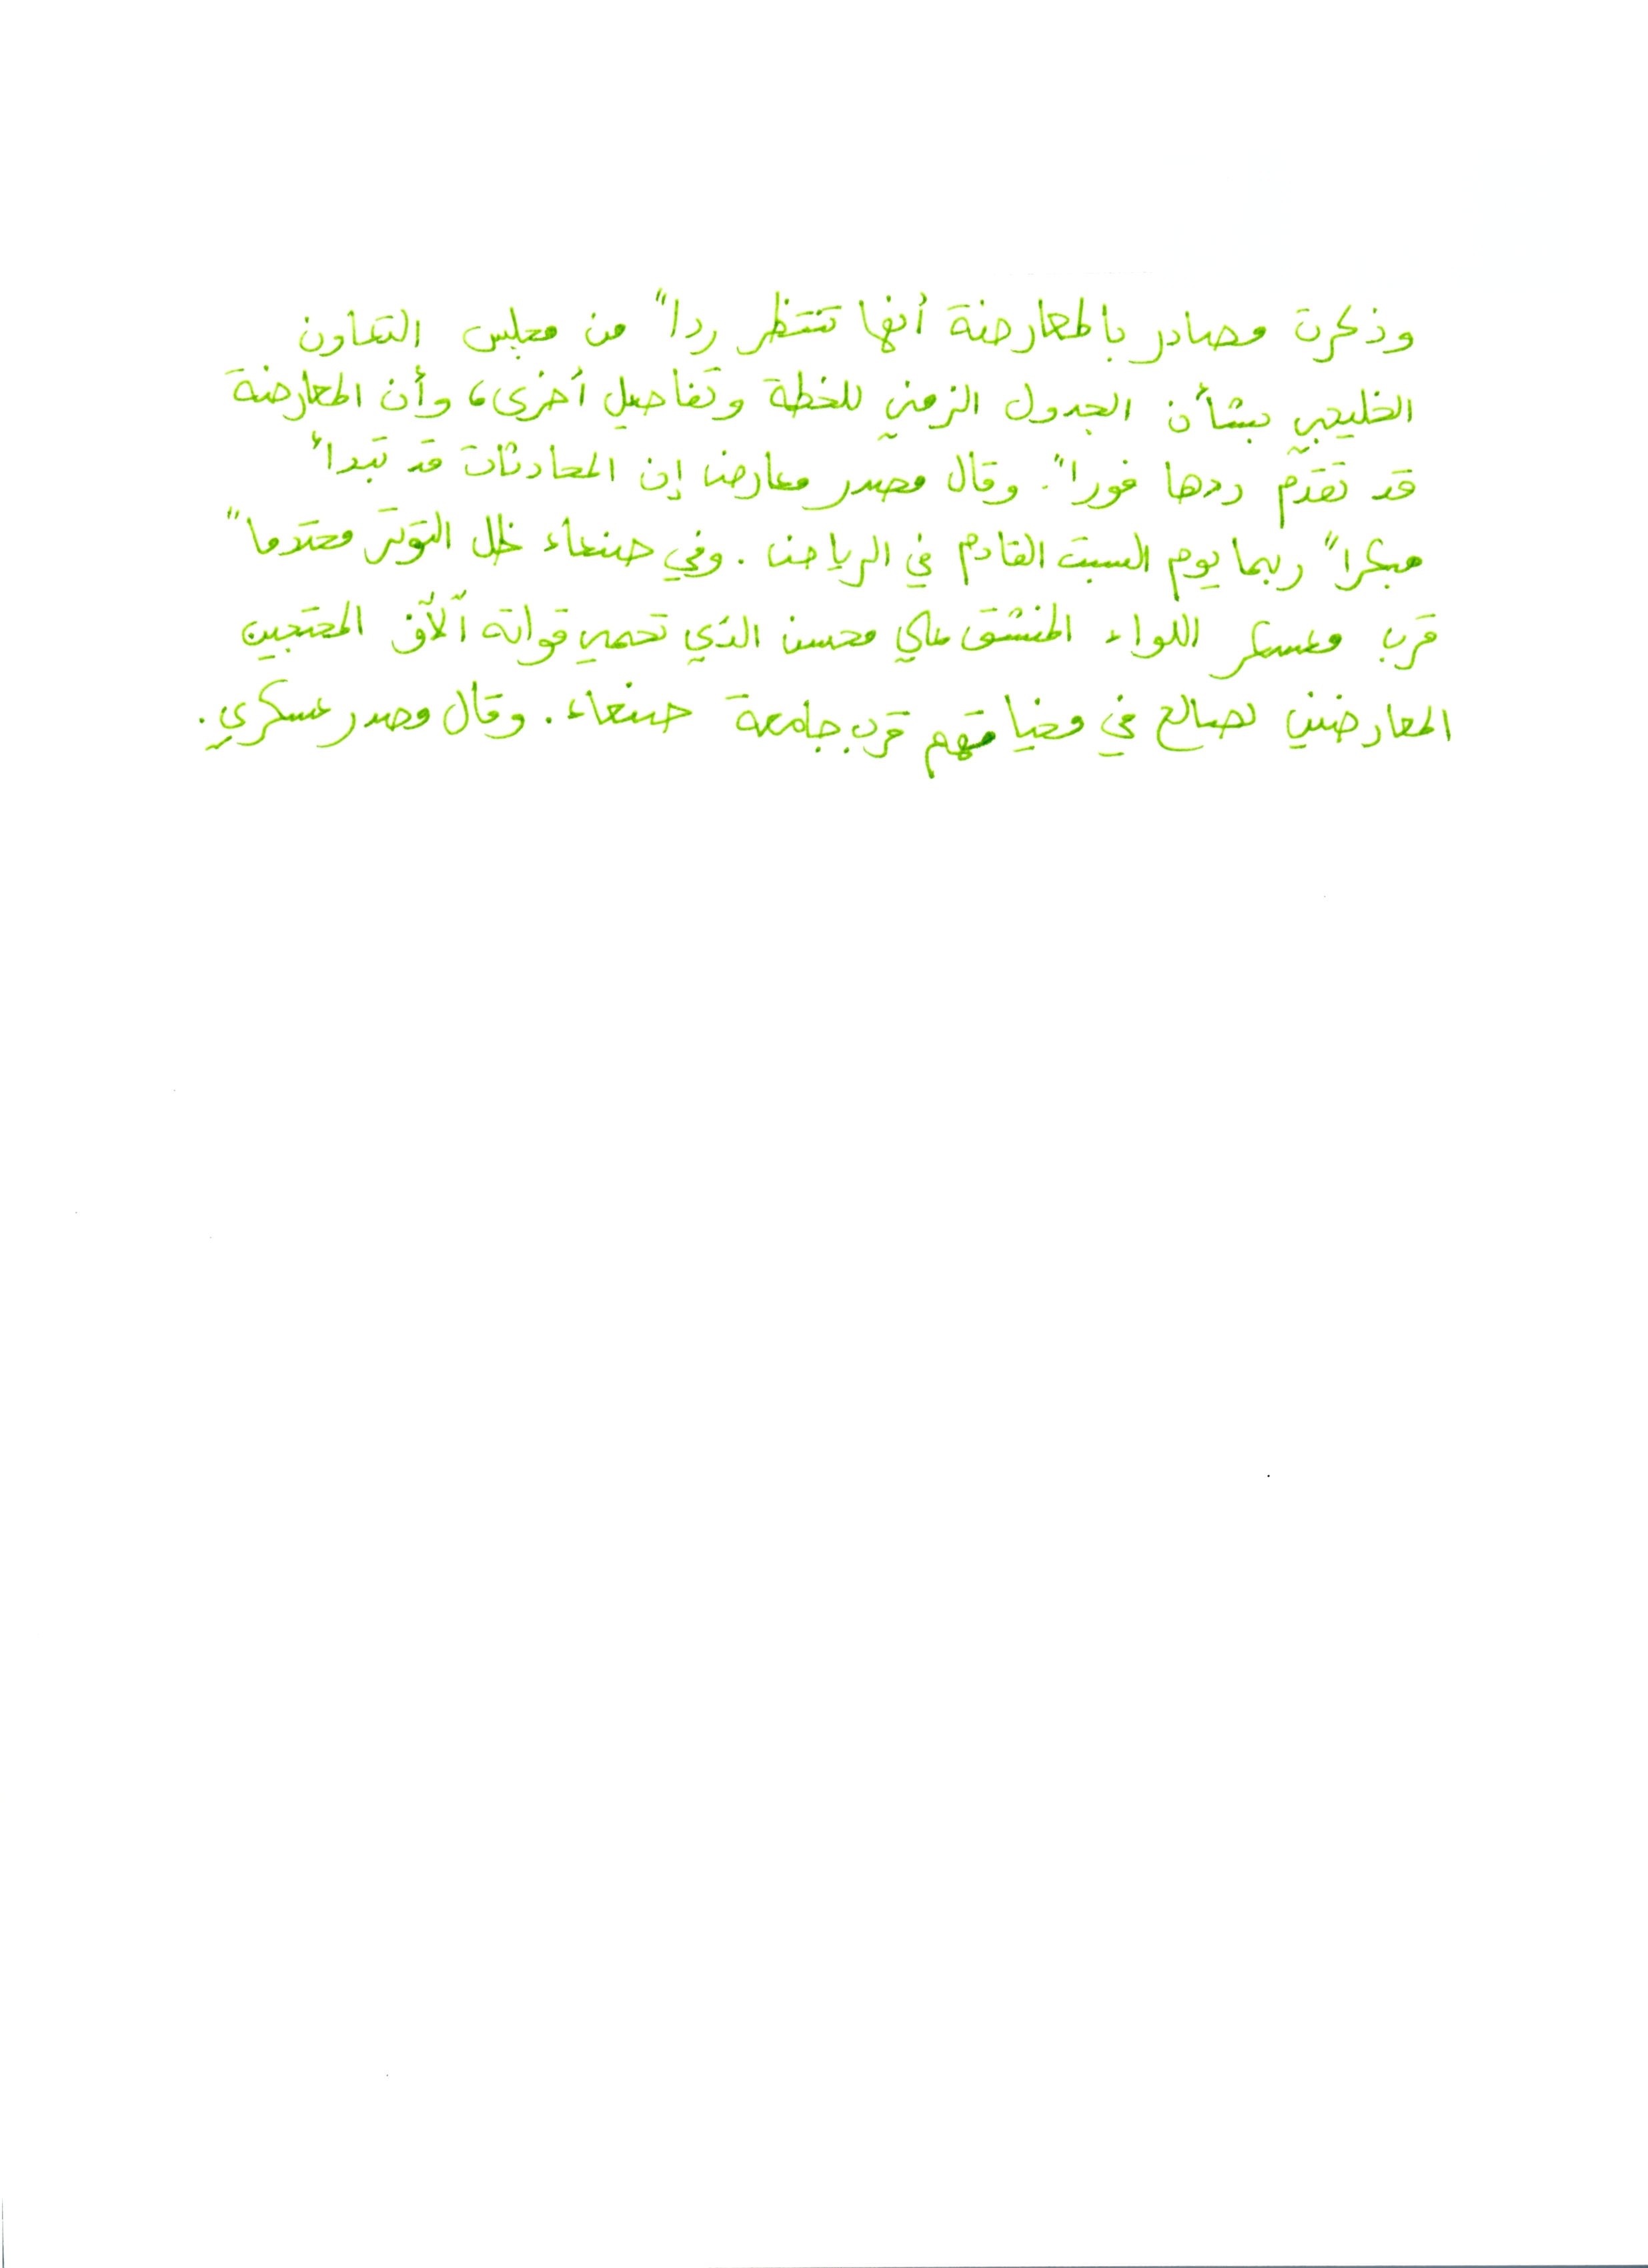 وذكرت مصادر بالمعارضة أنها تنتظر رداً من مجلس التعاون
الخليجي بشأن الجدول الزمني للخطة وتفاصيل أخرى، وأن المعارضة
قد تقدّم ردها فوراً. وقال مصدر معارض إن المحادثات قد تبدأ
مبكراً ربما يوم السبت القادم في الرياض. وفي صنعاء ظل التوتر محتدماً
قرب معسكر اللواء المنشق علي محسن الذي تحمي قواته آلآف المحتجين
المعارضين لصالح في مخيامتهم قرب جامعة صنعاء. وقال مصدر عسكري.